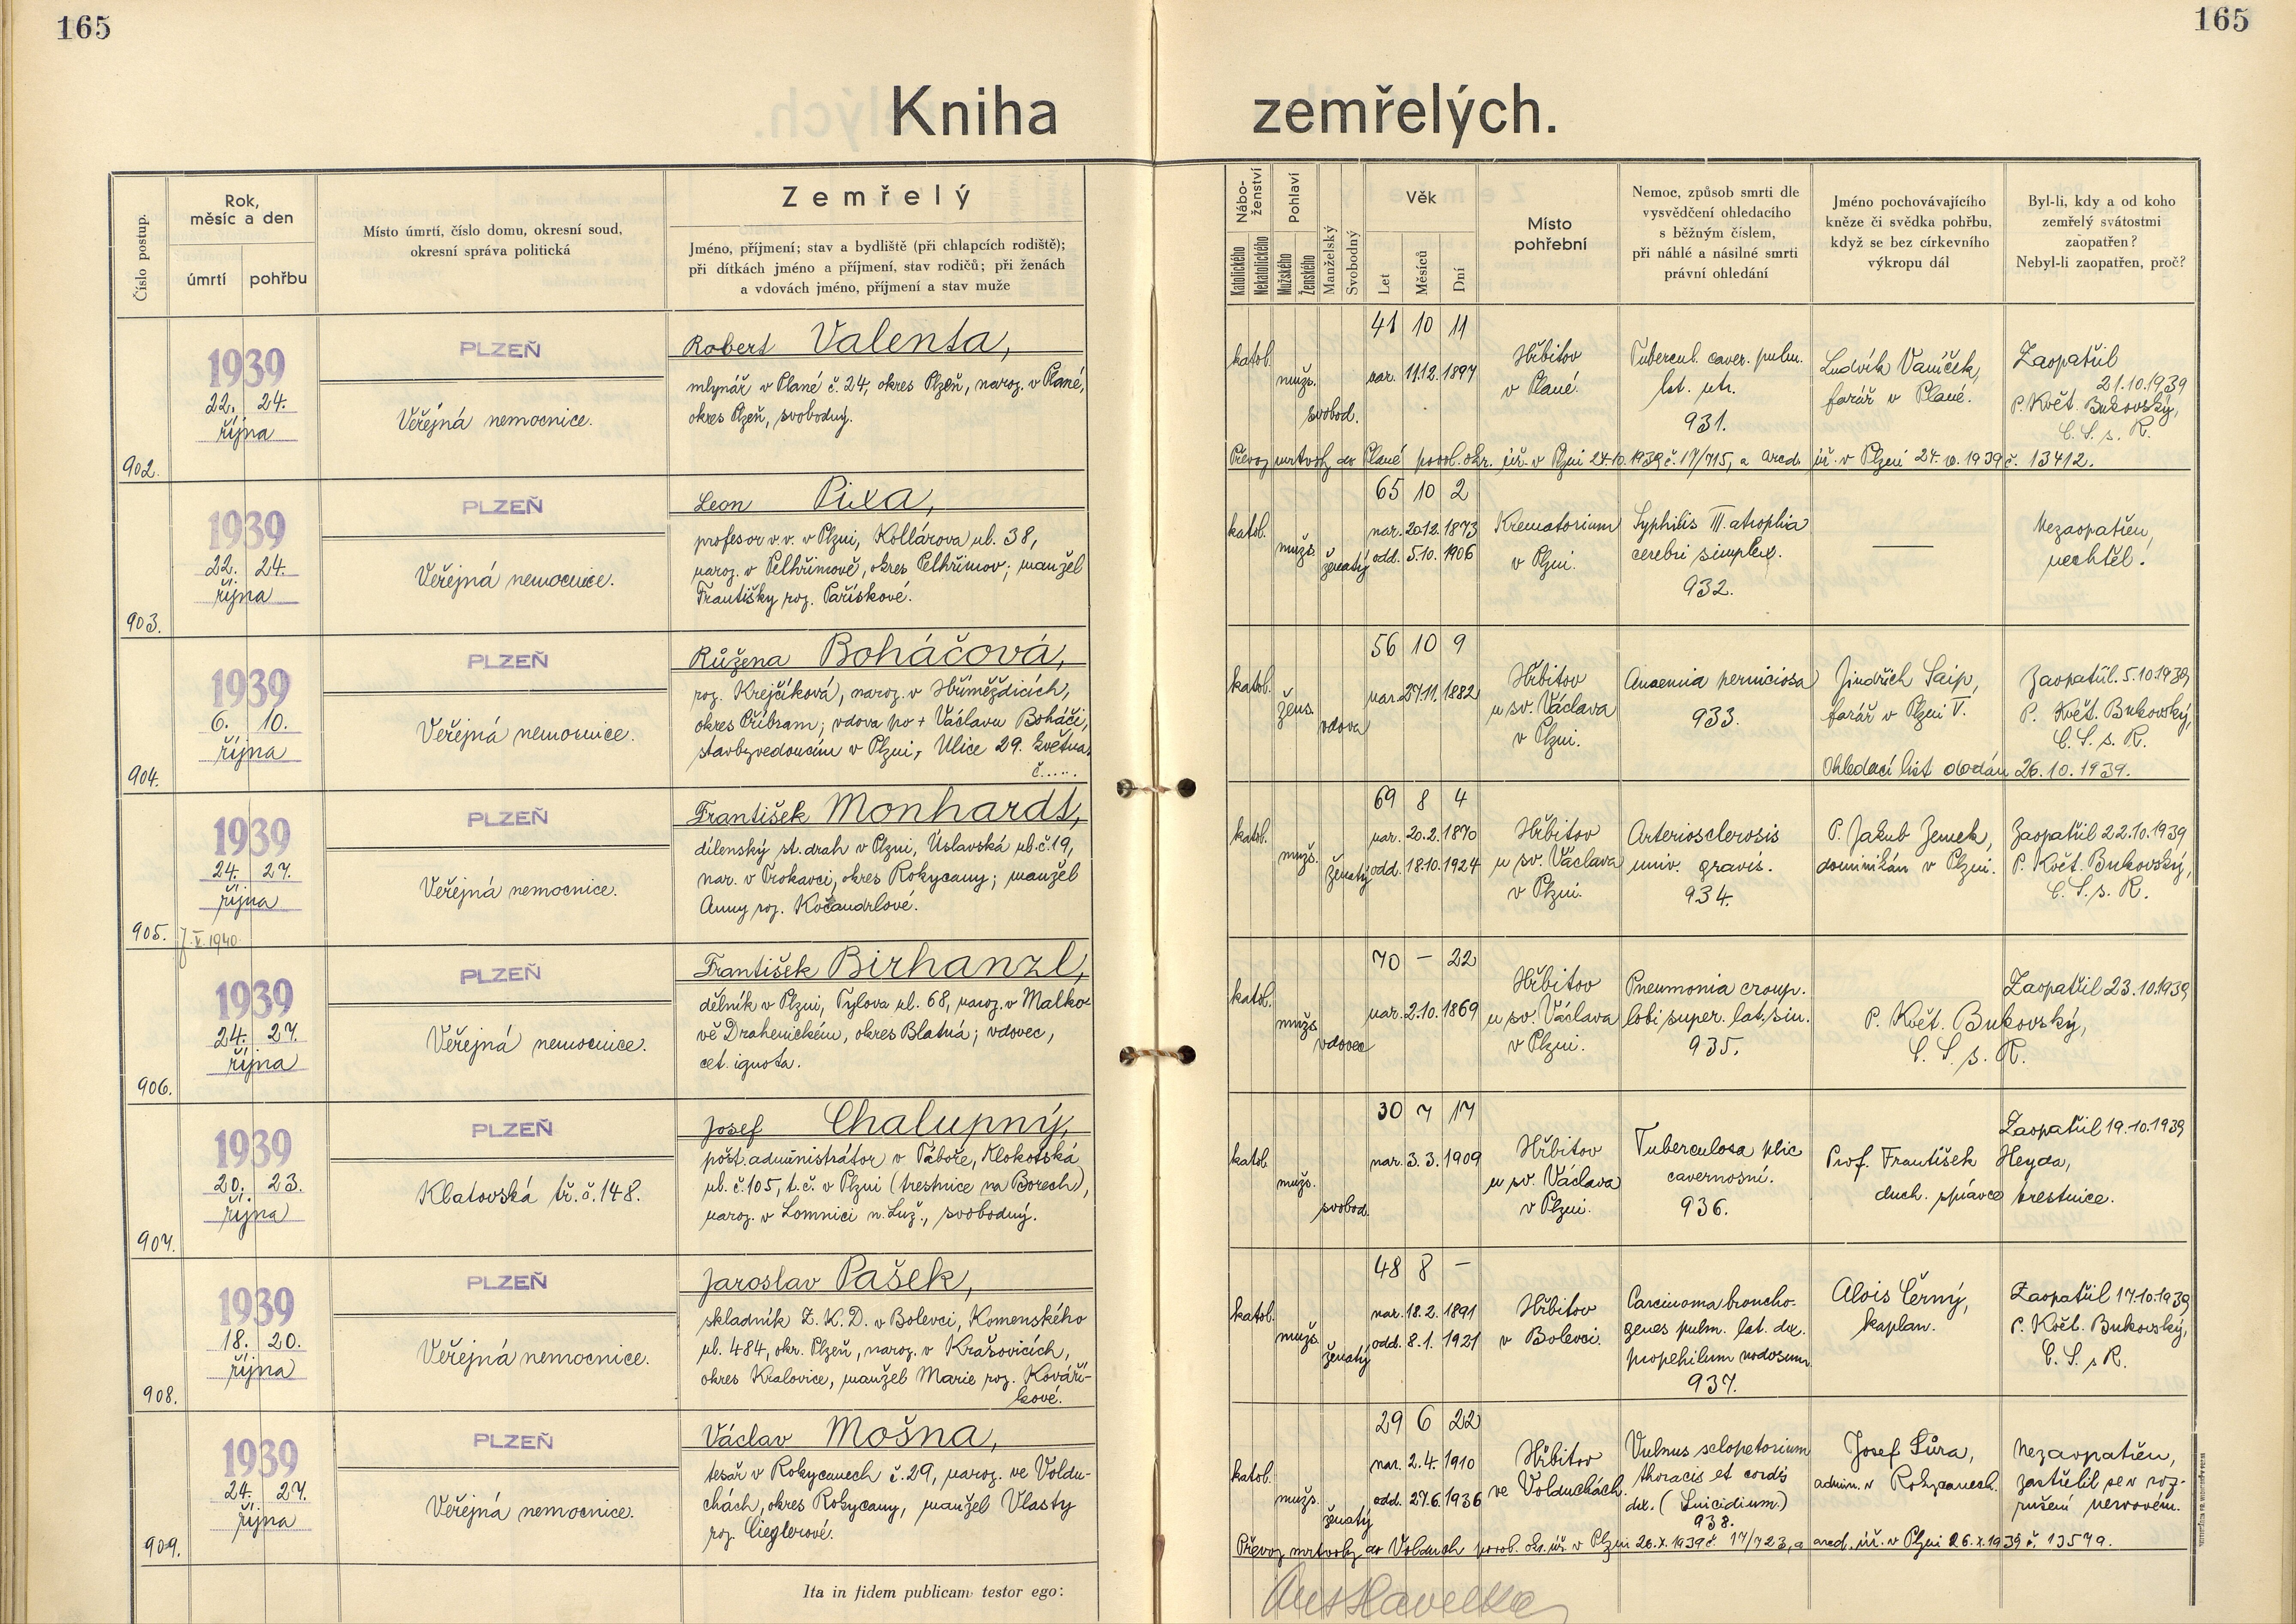 165
165
Kniha zemřelých.
Číslo postup.
Rok,
měsíc a den
úmrtí
pohřbu
Místo úmrtí, číslo domu, okresní soud,
okresní správa politická
Zemřelý
Jméno, příjmení; stav a bydliště (při chlapcích rodiště);
při dítkách jméno a příjmení, stav rodičů; při ženách
a vdovách jméno, příjmení a stav muže
Nábo-
ženství
Katolického
Nekatolického
Pohlaví
Mužského
Ženského
Manželský
Svobodný
Věk
Let
Měsíců
Dní
Místo
pohřební
Nemoc, způsob smrti dle
vysvědčení ohledacího
s běžným číslem,
při náhlé a násilné smrti
právní ohledání
Jméno pochovávajícího
kněze či svědka pohřbu,
když se bez církevního
výkropu dál
Byl-li, kdy a od koho
zemřelý svátostmi
zaopatřen?
Nebyl-li zaopatřen, proč?
902.
1939
22. 24.
října
PLZEŇ
Veřejná nemocnice.
Robert Valenta,
mlynář v Plané č. 24, okres Plzeň, naroz. v Plané,
okres Plzeň, svobodný.
katol.
mužs.
svobod.
41 10 11
nar. 11.12.1897
Hřbitov
v Plané.
Tubercul. caver. pulm.
lat. utr.
931.
Ludvík Vaníček,
farář v Plané.
Zaopatřil
21.10.1939
P. Květ. Bukovský,
C. S. s. R.
Převoz mrtvoly do Plané povol. okr. úř. v Plzni 24.10.1939 č. 17/715, a arcd. úř. v Plzni 24.10.1939 č. 13412.
903.
1939
22. 24.
října
PLZEŇ
Veřejná nemocnice.
Leon Pixa,
profesor v.v. v Plzni, Kollárova ul. 38,
naroz. v Pelhřimově, okres Pelhřimov; manžel
Františky roz. Pařískové.
katol.
mužs.
ženatý
65 10 2
nar. 20.12.1873
odd. 5.10. 1906
Krematorium
v Plzni.
Syphilis III. atrophia
cerebri simplex.
932.
Nezaopatřen,
nechtěl!
904.
1939
6. 10.
října
PLZEŇ
Veřejná nemocnice.
Růžena Boháčová,
roz. Krejčíková, naroz. v Hříměždicích,
okres Příbram; vdova po + Václavu Boháči,
stavbyvedoucím v Plzni, Ulice 29. května
č.....
katol.
žens.
vdova
56 10 9
nar. 27.11.1882
Hřbitov
u sv. Václava
v Plzni.
Anaemia perniciosa
933.
Jindřich Saip,
farář v Plzni V.
Zaopatřil 5.10.1939
P. Květ. Bukovský,
C. S. s. R.
Ohledací list dodán 26.10.1939.
905.
7. V. 1940
1939
24. 27.
října
PLZEŇ
Veřejná nemocnice.
František Monhardt,
dílenský st. drah v Plzni, Úslavská ul. č. 19,
nar. v Prokavci, okres Rokycany; manžel
Anny roz. Kočandrlové.
katol.
mužs.
ženatý
69 8 4
nar. 20.2.1870
odd. 18.10.1924
Hřbitov
u sv. Václava
v Plzni.
Arteriosclerosis
univ. gravis.
934.
P. Jakub Zemek,
dominikán v Plzni.
Zaopatřil 22.10.1939
P. Květ. Bukovský,
C. S. s. R.
906.
1939
24. 27.
října
PLZEŇ
Veřejná nemocnice.
František Birhanzl,
dělník v Plzni, Tylova ul. 68, naroz. v Malko-
vě Drahenickém, okres Blatná; vdovec,
cet. ignota.
katol.
mužs.
vdovec
70 – 22
nar. 2.10.1869
Hřbitov
u sv. Václava
v Plzni.
Pneumonia croup.
lobi super. lat. sin.
935.
Zaopatřil 23.10.1939
P. Květ. Bukovský,
C. S. s. R.
907.
1939
20. 23.
října
PLZEŇ
Klatovská tř. č. 148.
Josef Chalupný,
pošt. administrátor v Táboře, Klokotská
ul. č. 105, t. č. v Plzni (trestnice na Borech),
naroz. v Lomnici n. Luž., svobodný.
katol.
mužs.
svobod.
30 7 17
nar. 3.3.1909
Hřbitov
u sv. Václava
v Plzni.
Tuberculosa plic
cavernosní.
936.
Zaopatřil 19.10.1939
Prof. František Heyda,
duch. správce trestnice.
908.
1939
18. 20.
října
PLZEŇ
Veřejná nemocnice.
Jaroslav Pašek,
skladník Z. K. D. v Bolevci, Komenského
ul. 484, okr. Plzeň, naroz. v Krašovicích,
okres Kralovice, manžel Marie roz. Kováří-
kové.
katol.
mužs.
ženatý
48 8 –
nar. 18.2.1891
odd. 8.1. 1921
Hřbitov
v Bolevci.
Carcinoma broncho-
genes pulm. lat. dx.
propehilum nodosum
937.
Alois Černý,
kaplan.
Zaopatřil 17.10.1939
P. Květ. Bukovský,
C. S. s R.
909.
1939
24. 27.
října
PLZEŇ
Veřejná nemocnice.
Václav Mošna,
tesař v Rokycanech č. 29, naroz. ve Voldu-
chách, okres Rokycany, manžel Vlasty
roz. Cieglerové.
katol.
mužs.
ženatý
29 6 22
nar. 2.4.1910
odd. 27.6.1936
Hřbitov
ve Volduchách.
Vulnus sclopetorium
thoracis et cordis
dx. (Suicidium.)
938.
Josef Sůra,
admin. v Rokycanech.
Nezaopatřen,
zastřelil se v roz-
rušení nervovém.
Převoz mrtvoly do Volduch povol. okr. úř. v Plzni 26.X.1939 č. 17/723, a arcd. úř. v Plzni 26.X.1939 č. 13579.
Ita in fidem publicam testor ego:
Ant Havelka